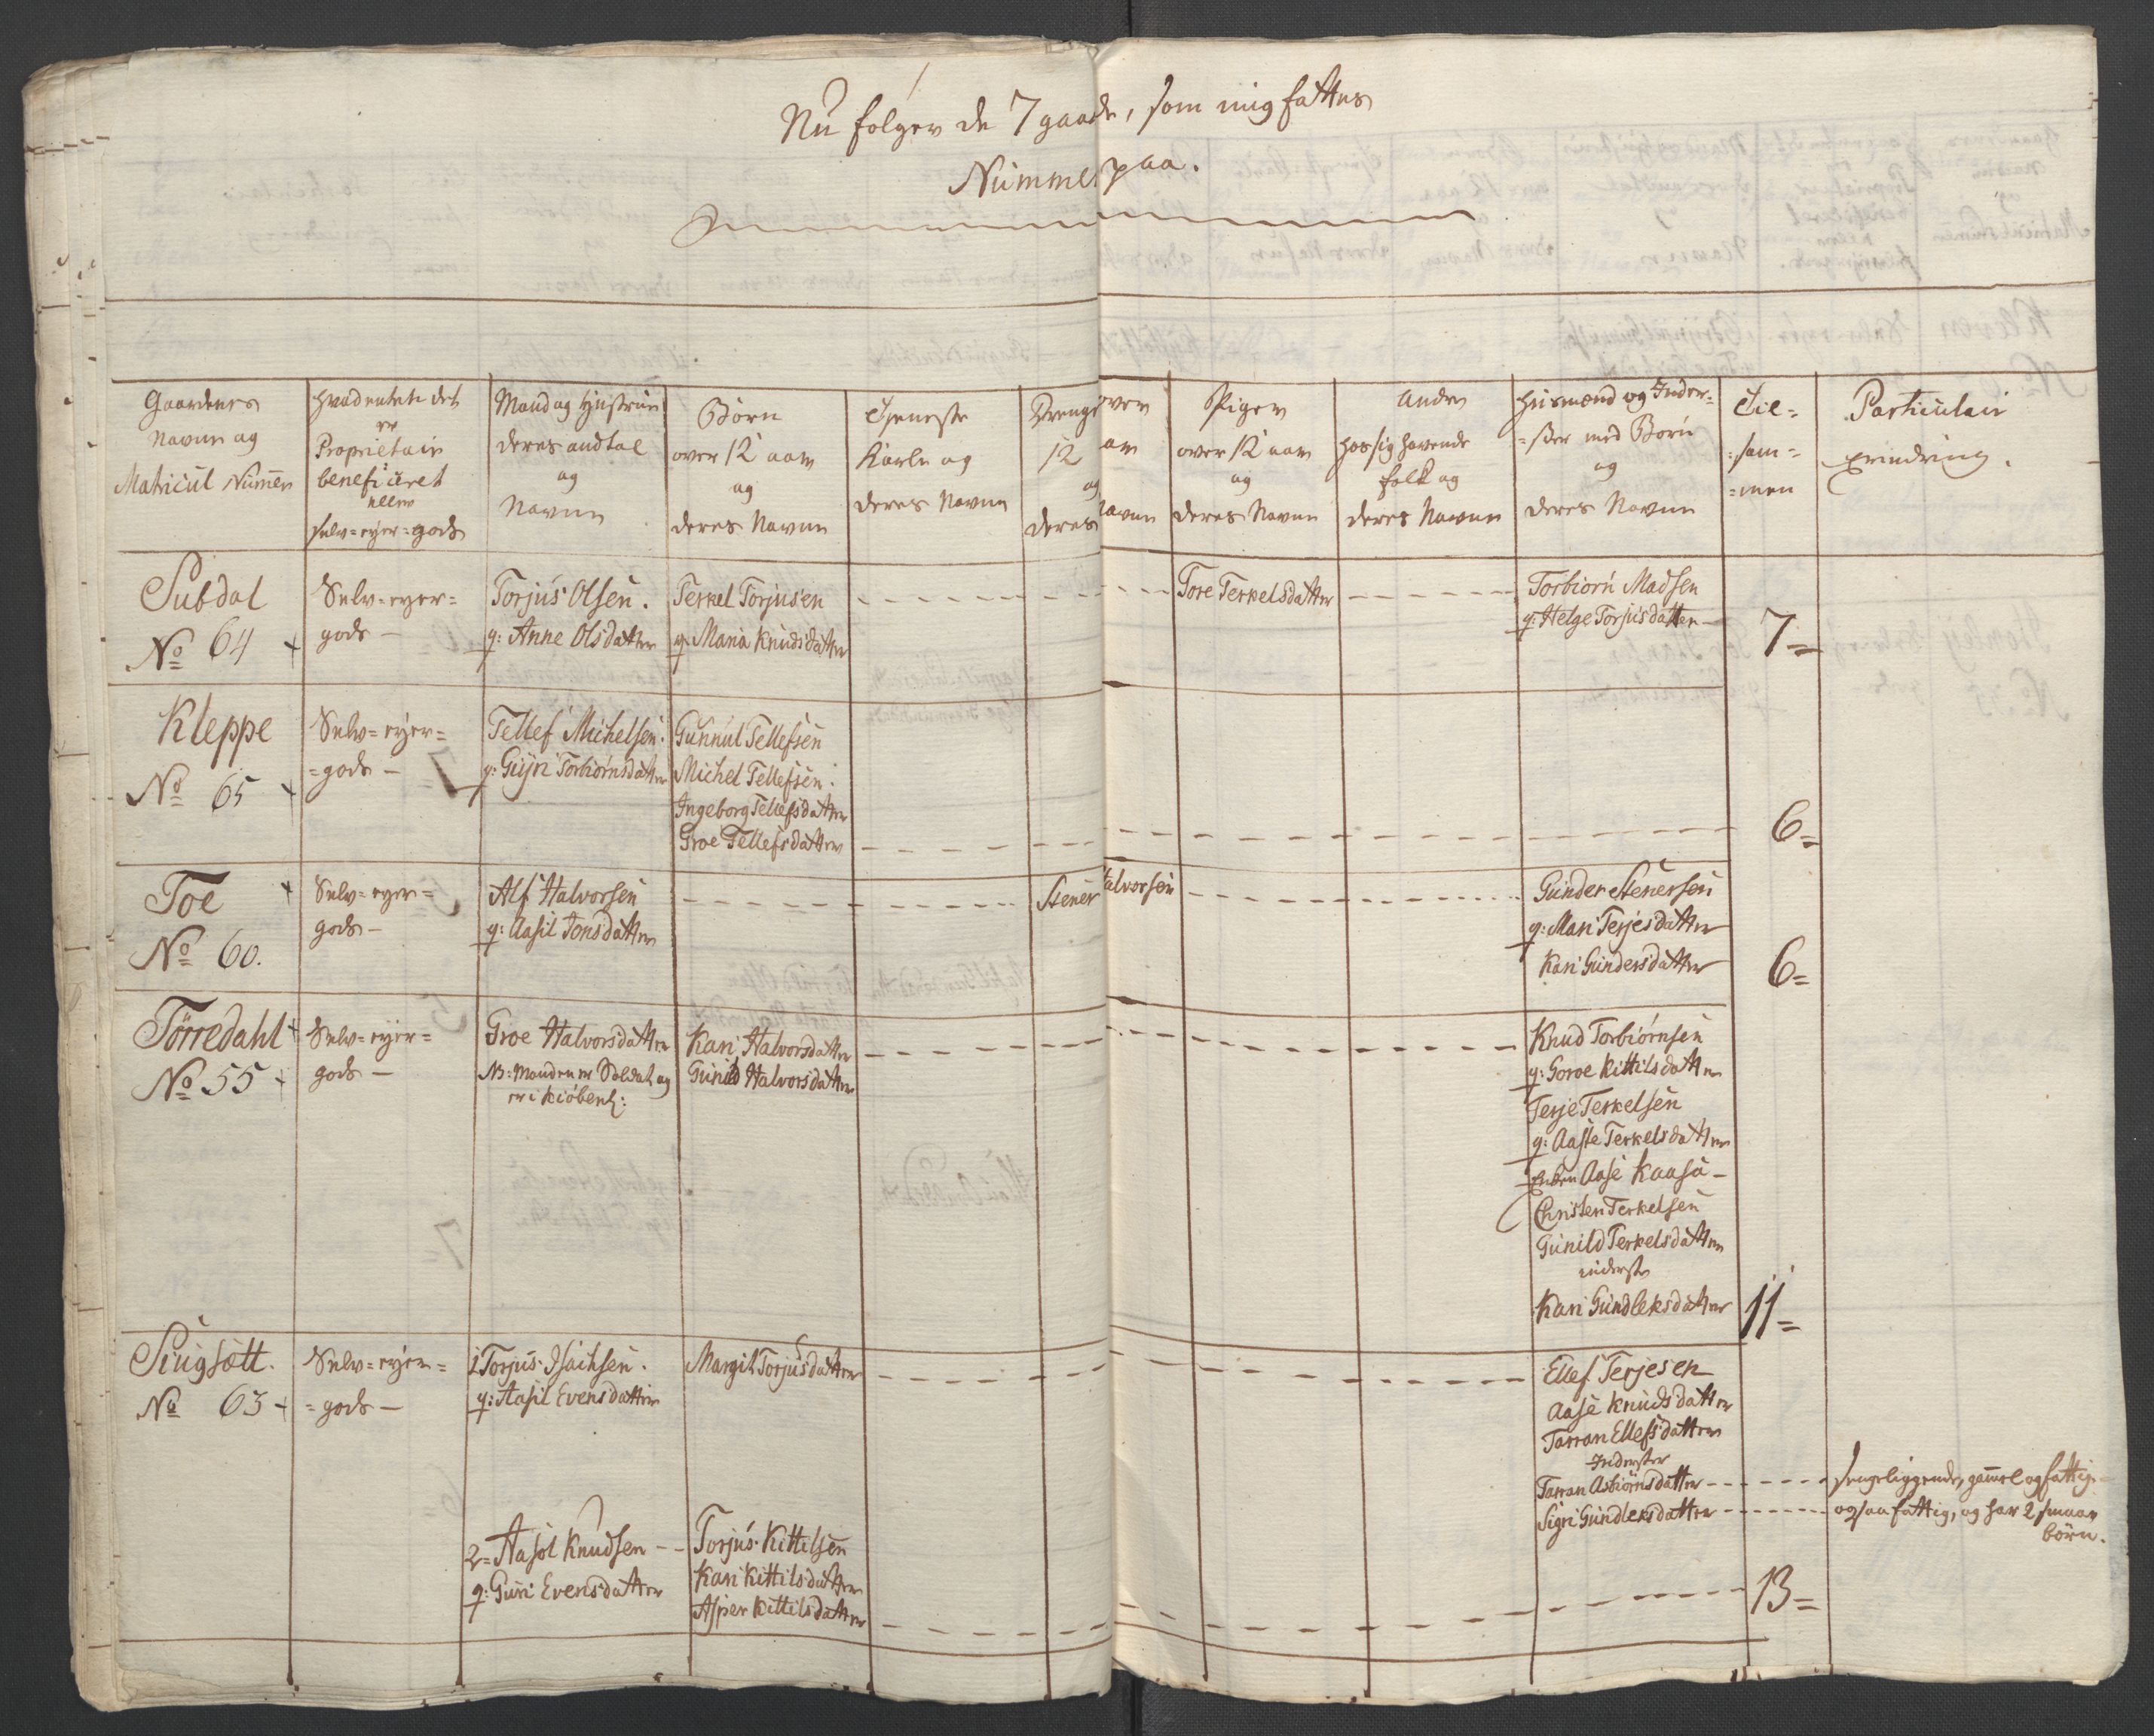 Nu følger de 7 gaarde, som mig fattes
Nummer paa.
Gaardenes
Navne og
Matricul Numer
Hvad enten det
er
Proprietair
beneficeret
eller
selv=eyer=gods
Mand og Hustrue
deres andtal
og
Navne
Børn
over 12 aar
og
deres Navne
Tjeneste
Karle og
deres Navne
Drenge over
12 aar
og
deres Navne
Piger
over 12 aar
og
deres Navne
Anden
hos sig havende
folk og
deres Navne
Husmænd og Inder=
=ster med Børn
og
deres Navne
Til=
=sam=
=men
Particulair
Erindring.
Subdal
No 64
Selv=eyer=
gods —
Torjus Olsen.
q: Anne Olsdatter
Terkel Torjusen
q: Maria Knudsdatter
Tore Terkelsdatter
Torbiorn Madsen
q: Helge Torjusdatter
7=
Kleppe
No 65
Selv=eyer=
=gods —
Tellef Michelsen.
q: Gyri Torbiørnsdatter
Gunnul Tellefsen
Michel Tellefsen.
Ingeborg Tellefsdatter
Groe Tellefsdatter
6=
Toe
No 60.
Selv=eyer=
gods —
Alf Halvorsen
q: Aasil Jonsdatter
Stener Halvorsen
Gunder Stenersen
q: Mari Terjesdatter
Kari Gundersdatter
6=
Tørredahl
No 55
Selv=eyer=
gods —
Groe Halvorsdatter
NB: Manden er Soldat og
er i Kiøbenh:
Kari Halvorsdatter
Gunild Halvorsdatter
Knud Torbiørnsen
q: Goroe Kittilsdatter
Terje Terkelsen
q: Aaste Terkelsdatter
Enken Aase Kaasa —
Christen Terkelsen
Gunild Terkelsdatter
inderste
Kari Gundleksdatter
11=
No 63
Selv=eyer=
=gods —
1 Torjus Isaihsen.
q: Aasil Evensdatter
Margit Torjusdatter
Ellef Terjesen
Aase Knudsdatter
Tarran Ellefsdatter
Inderster
Tarran Asbiörnsdatter
sengeliggende, gammel og fattig
Sigri Gundleksdatter
ogsaa fattig, og har 2 smaae
børn.
2= Aasol Knudsen
q: Guri Evensdatter
Torjus Kittilsen
Kari Kittilsdatter
Asper Kittilsdatter
13=